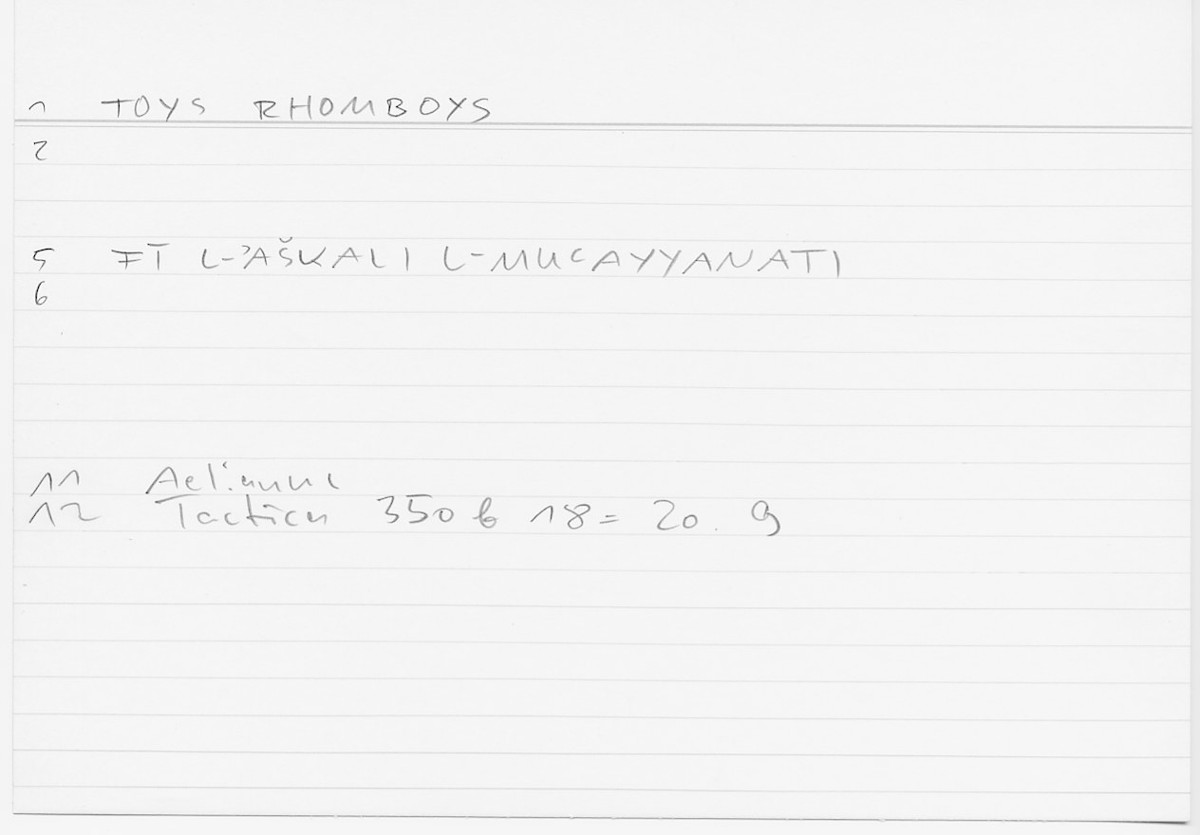 1 TOYS RHOMBOYS
2
5 FĪ L-ʾAŠKALI L-MUʿAYYANATI
6
11 Aelianus
12 Tactica 350 b 18 = 20. 9